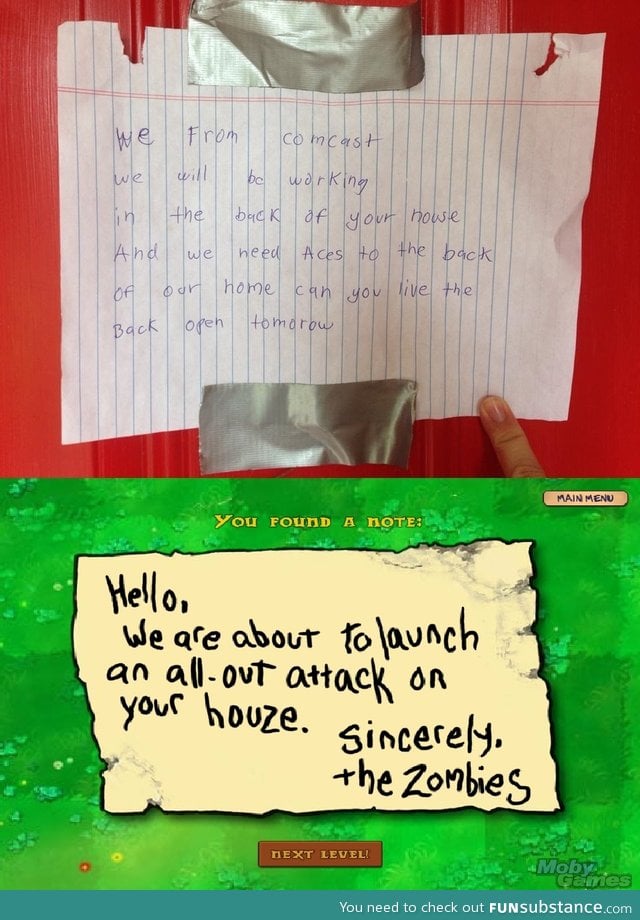 We From comcast
we will be working
in the back of your house
And we need Aces to the back
of our home can you live the
Back open tomorow
MAIN MENU
YOU FOUND A NOTE:
Hello,
We are about to launch
an all-out attack on
your houze.
Sincerely,
the Zombies
NEXT LEVEL!
Moby
Games
You need to check out FUNsubstance.com